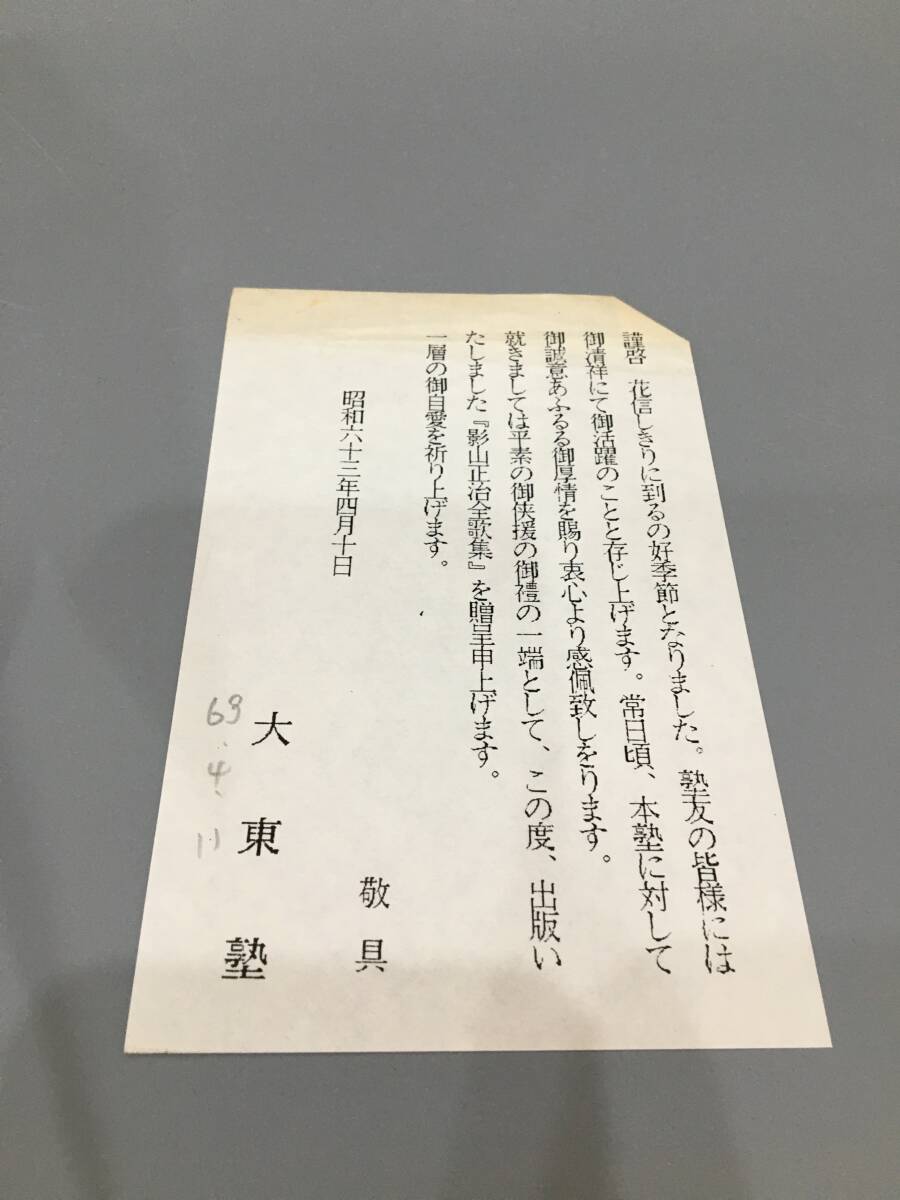 謹啓 花信しきりに到るの好季節となりました。塾友の皆様には
御清祥にて御活躍のことと存じ上げます。常日頃、本塾に対して
御誠意あふるる御厚情を賜り衷心より感佩致しをります。
就きましては平素の御俠援の御禮の一端として、この度、出版い
たしました『影山正治全歌集』を贈呈申上げます。
一層の御自愛を祈り上げます。
敬具
昭和六十三年四月十日
大東塾
63.4.11